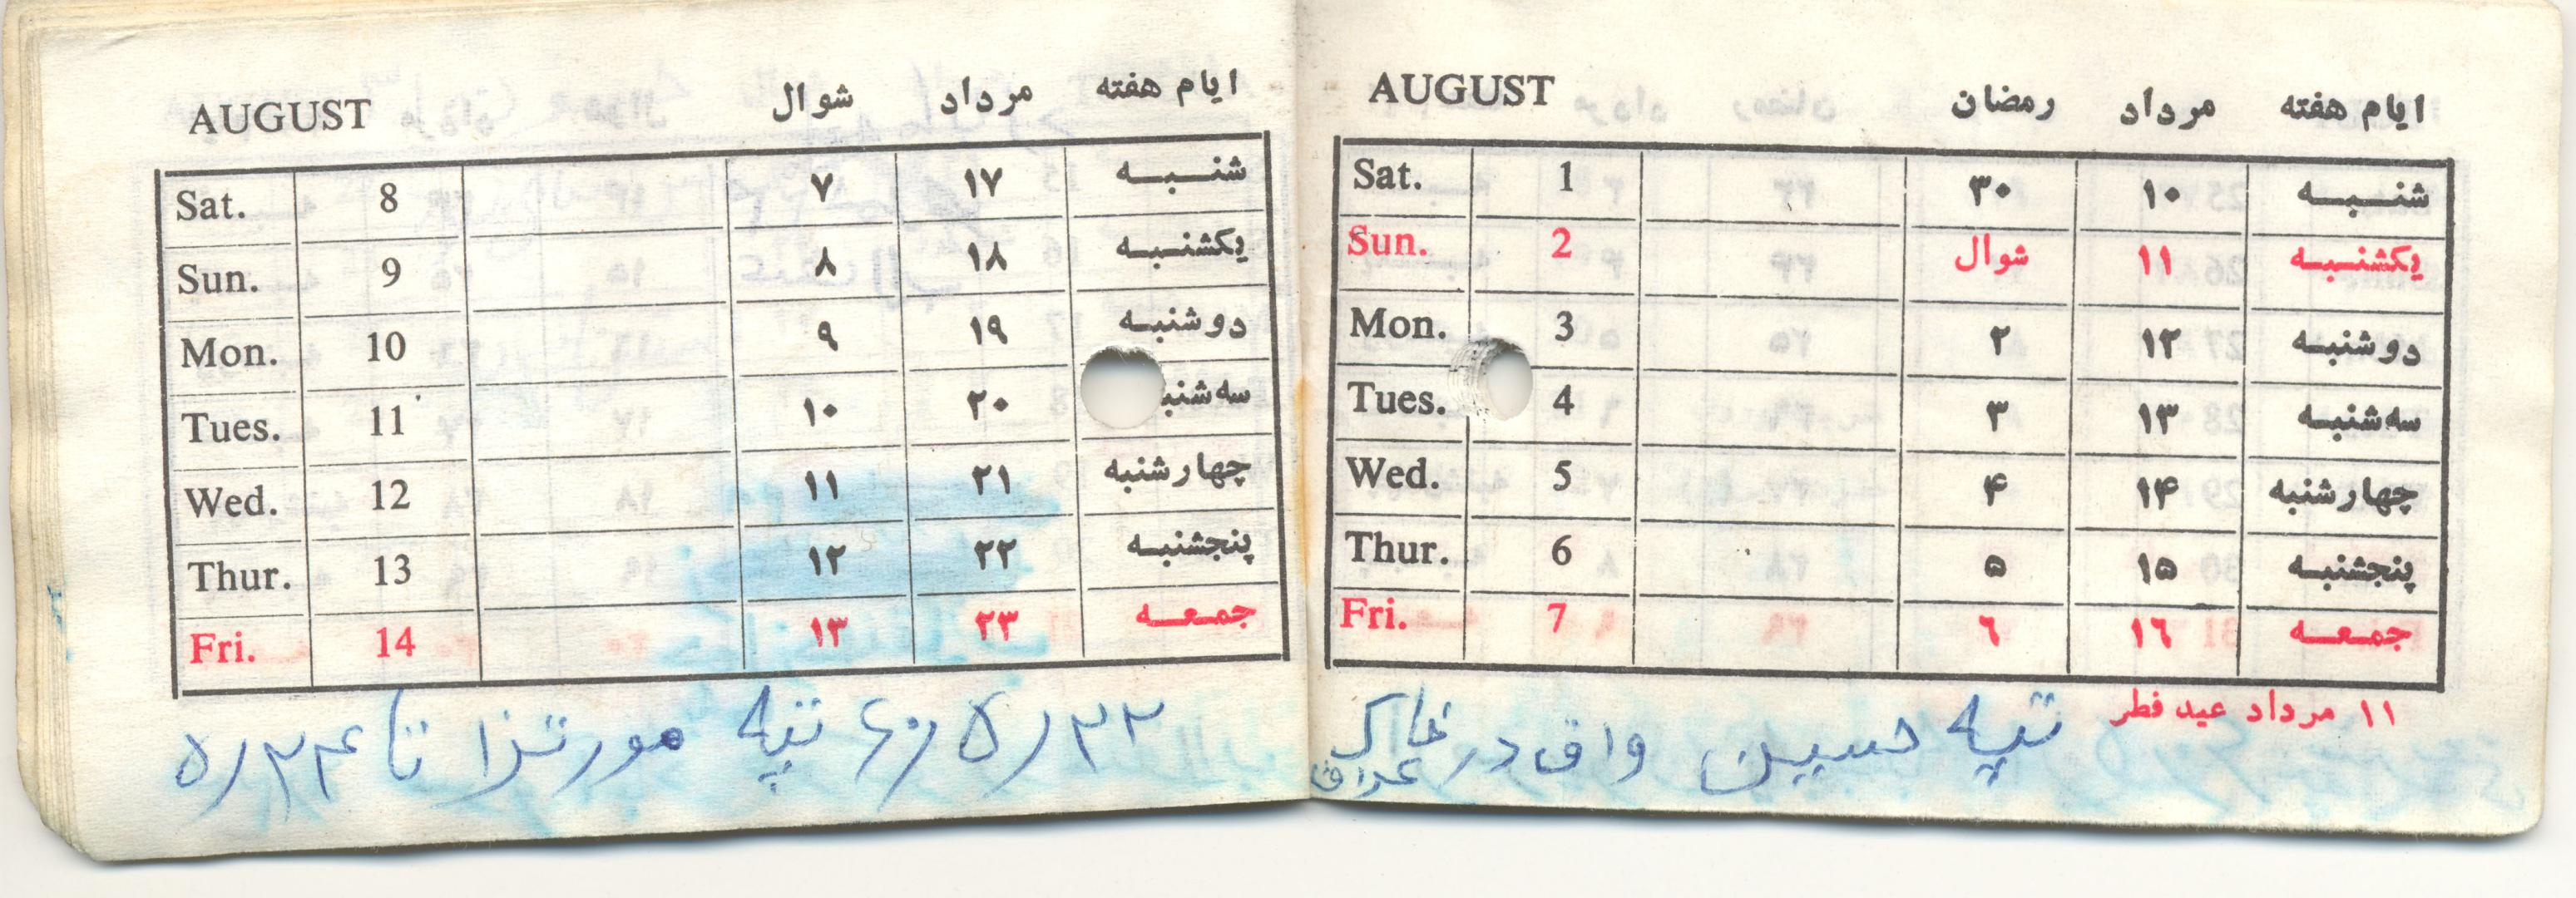 AUGUST شوال مرداد ایام هفته
Sat. 8 ۷ ۱۷ شنبه
Sun. 9 ۸ ۱۸ یکشنبه
Mon. 10 ۹ ۱۹ دوشنبه
Tues. 11 ۱۰ ۲۰ سه‌شنبه
Wed. 12 ۱۱ ۲۱ چهارشنبه
Thur. 13 ۱۲ ۲۲ پنجشنبه
Fri. 14 ۱۳ ۲۳ جمعه
تپه مورتزا تا ۵/۲۴
AUGUST رمضان مرداد ایام هفته
Sat. 1 ۳۰ ۱۰ شنبه
Sun. 2 شوال ۱۱ یکشنبه
Mon. 3 ۲ ۱۲ دوشنبه
Tues. 4 ۳ ۱۳ سه‌شنبه
Wed. 5 ۴ ۱۴ چهارشنبه
Thur. 6 ۵ ۱۵ پنجشنبه
Fri. 7 ۶ ۱۶ جمعه
۱۱ مرداد عید فطر
تپه حسین واق در خاک
عراق